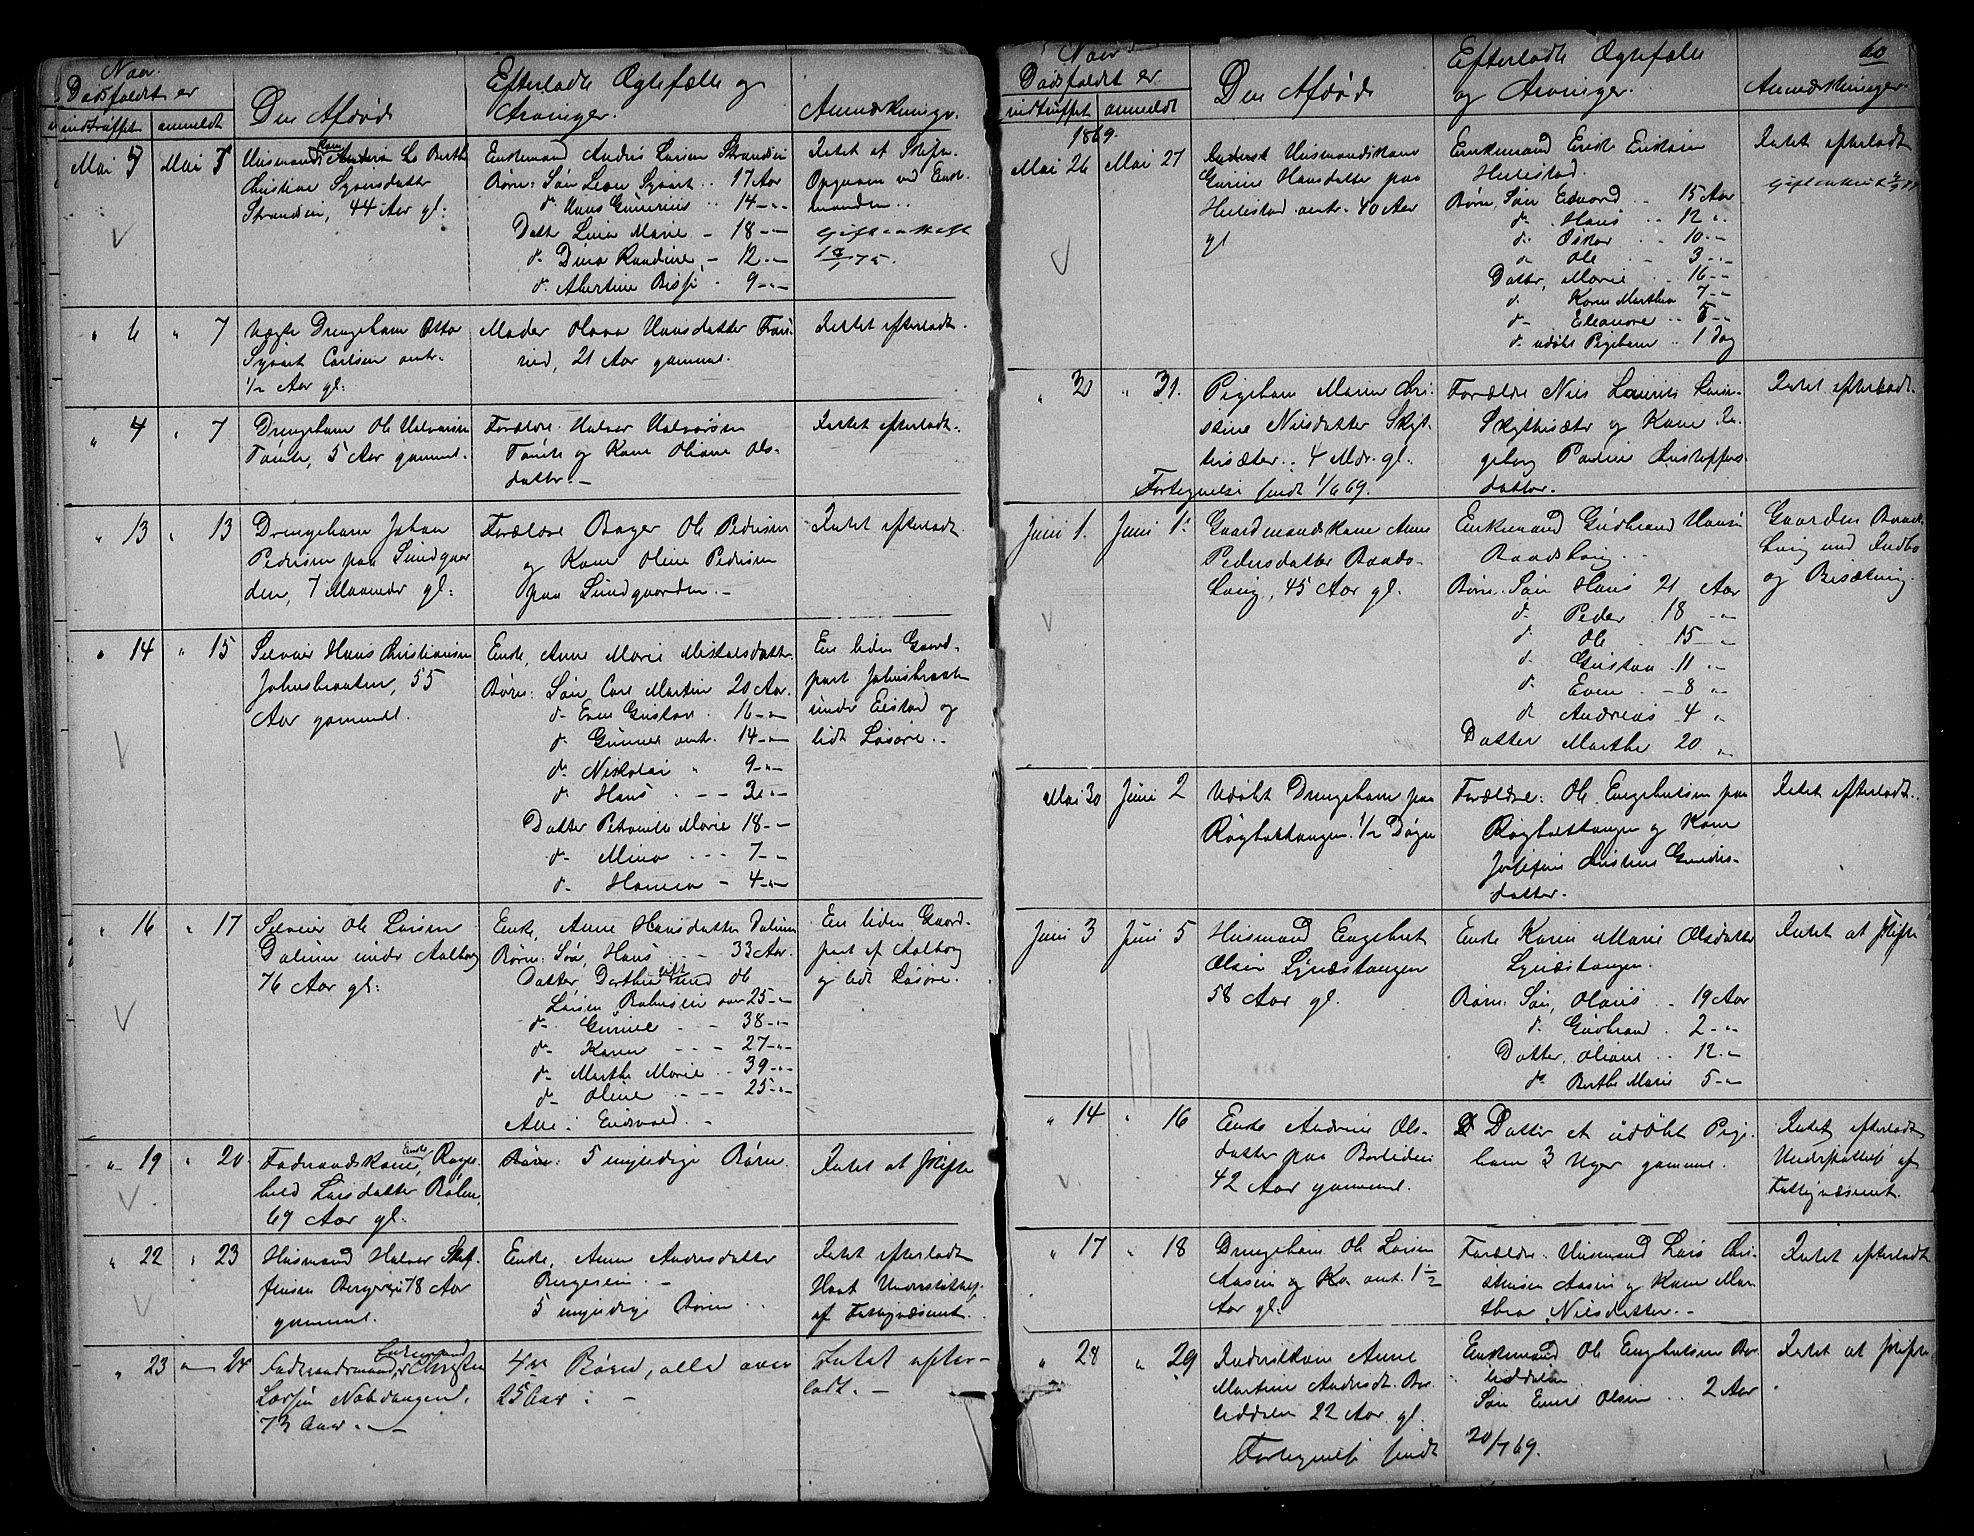 Naar
Dødsfaldet er
indtruffet anmeldt
Den Afdøde
Efterladte Ægtefælle og
Arvinger.
Anmærkninger.
Mai 5 Mai 5
Husmandskone Anders L. Berthe
Christine Syversdatter
Stranden, 44 Aar gl:
Enkemand Anders Larsen Stranden
Børn: Søn Lean Syvert .. 17 Aar
do Hans Gunerius .. 14 -"-
Datter Lina Marie - 18 -"-
do Dina Randine - 12 -"-
do Albertine - 9 -"-
Intet at Skifte
Opgaven ved Enke-
manden ..
" 6 " 7
Uægte Drengebarn Otto
Syvert Carlsen omtr.
1/2 Aar gl:
Moder Hansdatter
21 Aar gammel.
Intet efterladt.
" 4 " 7
Drengebarn Ole Halvorsen
Tømte, 5 Aar gammel.
Forældre Halvor Halvorsen
Tømte og Kone Oliane Ols-
datter. -
Intet efterladt.
" 13 " 13
Drengebarn Johan
Pedersen paa Sundgaar
den, 7 Maaneder gl:
Forældre Bager Ole Pedersen
og Kone Oline Pedersen
paa Sundgaarden. -
Intet efterladt.
" 14 " 15
Selveier Hans Christiansen
Johnsbraaten, 55
Aar gammel.
Enke, Anne Marie Mikkelsdatter.
Børn: Søn Carl Martin 20 Aar.
do Even Gustav . 16 -"-
do Gunner omtr. 14 -"-
do Nikolai " 9 -"-
do Hans . - - 3 -"-
Datter Petronille Marie 18 -"-
do Mina - - - 7 -"-
do Hanna - 4 -"-
En liden Gaard-
part Johnsbraaten
under Eistad og
lidt Løsøre. -
" 16 " 17
Selveier Ole Larsen
Dalium under Aalborg
76 Aar gl:
Enke, Anne Hansdatter Dalium
Børn: Søn, Hans . - 33 Aar.
Datter, Dorthea gift med Ole
Larsen over 25 -"-
do Gurine . - 38 -"-
do Karen - - - 27 -"-
do Marthe Marie .. 39 -"-
do Oline . - - - 25 -"-
Alle i Eidsvold. -
En liden Gaard-
part af Aalborg
og lidt Løsøre.
" 19 " 20
Fadraadskone, Enke Ragn-
hild Larsdatter
69 Aar gl.
Børn: 5 myndige Børn.
Intet at skifte
" 22 " 23
Husmand Halvor Stef-
fensen Bergerei 78 Aar
gammel.
Enke, Anne Andersdatter
Bergerei. -
5 myndige Børn ..
Intet efterladt
Havt Understøttelse
af Fattigvæsenet.
" 23 " 24
Fadraadsmand, Enkemand Christen
Larsen
73 Aar. -
4re Børn, alle over
25 Aar: -
Intet efter-
ladt. -
60
Naar
Dødsfaldet er
indtruffet anmeldt
Den Afdøde
Efterladte Ægtefælle
og Arvinger.
Anmærkninger.
1869.
Mai 26 Mai 27
Inderst Husmandskone
Gurine Hansdatter paa
Hellestad omtr. 40 Aar
gl
Enkemand Erik Eriksen
Hellestad.
Børn, Søn Edvard .. 15 Aar
do Hans .. 12 "
do Oskar .. 10 -"-
do Ole .. 3 -"-
Datter, Marie . 16 -"-
do Karen Marthea 7 -"-
do Eleanore .. 5 -"-
do udøbt Pigebarn .. 1 Dag
Intet efterladt
" 30 " 31.
Pigebarn Maren Chri-
stine Nilsdatter Skyt-
tersæter .. 4 Mdr. gl.
Fortegnelse sendt 1/6 69.
Forældre Nils Laurits
Skyttersæter og Kone In-
geborg Pauline Christoffers-
datter.
Intet efterladt.
Juni 1. Juni 1.
Gaardmandskone Anne
Pedersdatter Baads-
haug, 45 Aar gl.
Enkemand Gudbrand Hansen
Baadshaug ..
Børn: Søn Hans 21 Aar
do Peder . 18 -"-
do Ole . 15 -"-
do Gustav . 11 "
do Even . - 8 "
do Andreas . 4 "
Datter Marthe 20 "
Gaarden Baads-
haug med Indbo
og Besætning.
Mai 30 Juni 2
Udøbt Drengebarn paa
Røgholttangen. 1/2 Døgn
Forældre: Ole Engebretsen paa
Røgholttangen og Kone
Josefine Christine
datter.
Intet efterladt.
Juni 3 Juni 5
Husmand Engebret
Olsen Lynæstangen
58 Aar gl.
Enke Karen Marie Olsdatter
Lynæstangen.
Børn: Søn, Olaus .. 19 Aar
do Gudbrand . 2 -"-
Datter, Oliane .. 12 -"-
do Berthe Marie 5 -"-
Intet at skifte
" 14 " 16
Enke Andrine Ols-
datter paa Borliden
42 Aar gammel.
Datter et udøbt Pige-
barn 3 Uger gammel.
Intet efterladt
Understøttet af
Fattigvæsenet.
" 17 " 18
Drengebarn Ole Larsen
Aasen omtr. 1 1/2
Aar gl.
Forældre. Husmand Lars Chri-
stensen Aasen og Kone Mar-
thea Nilsdatter. -
Intet efterladt
" 28 " 29
Inderstkone Anne
Martine Andersdt. Bor-
lidden 22 Aar gl.
Fortegnelse sendt 20/7 69.
Enkemand Ole Engebretsen Bor-
lidden
Søn Emil Olsen .. 2 Aar
Intet at skifte